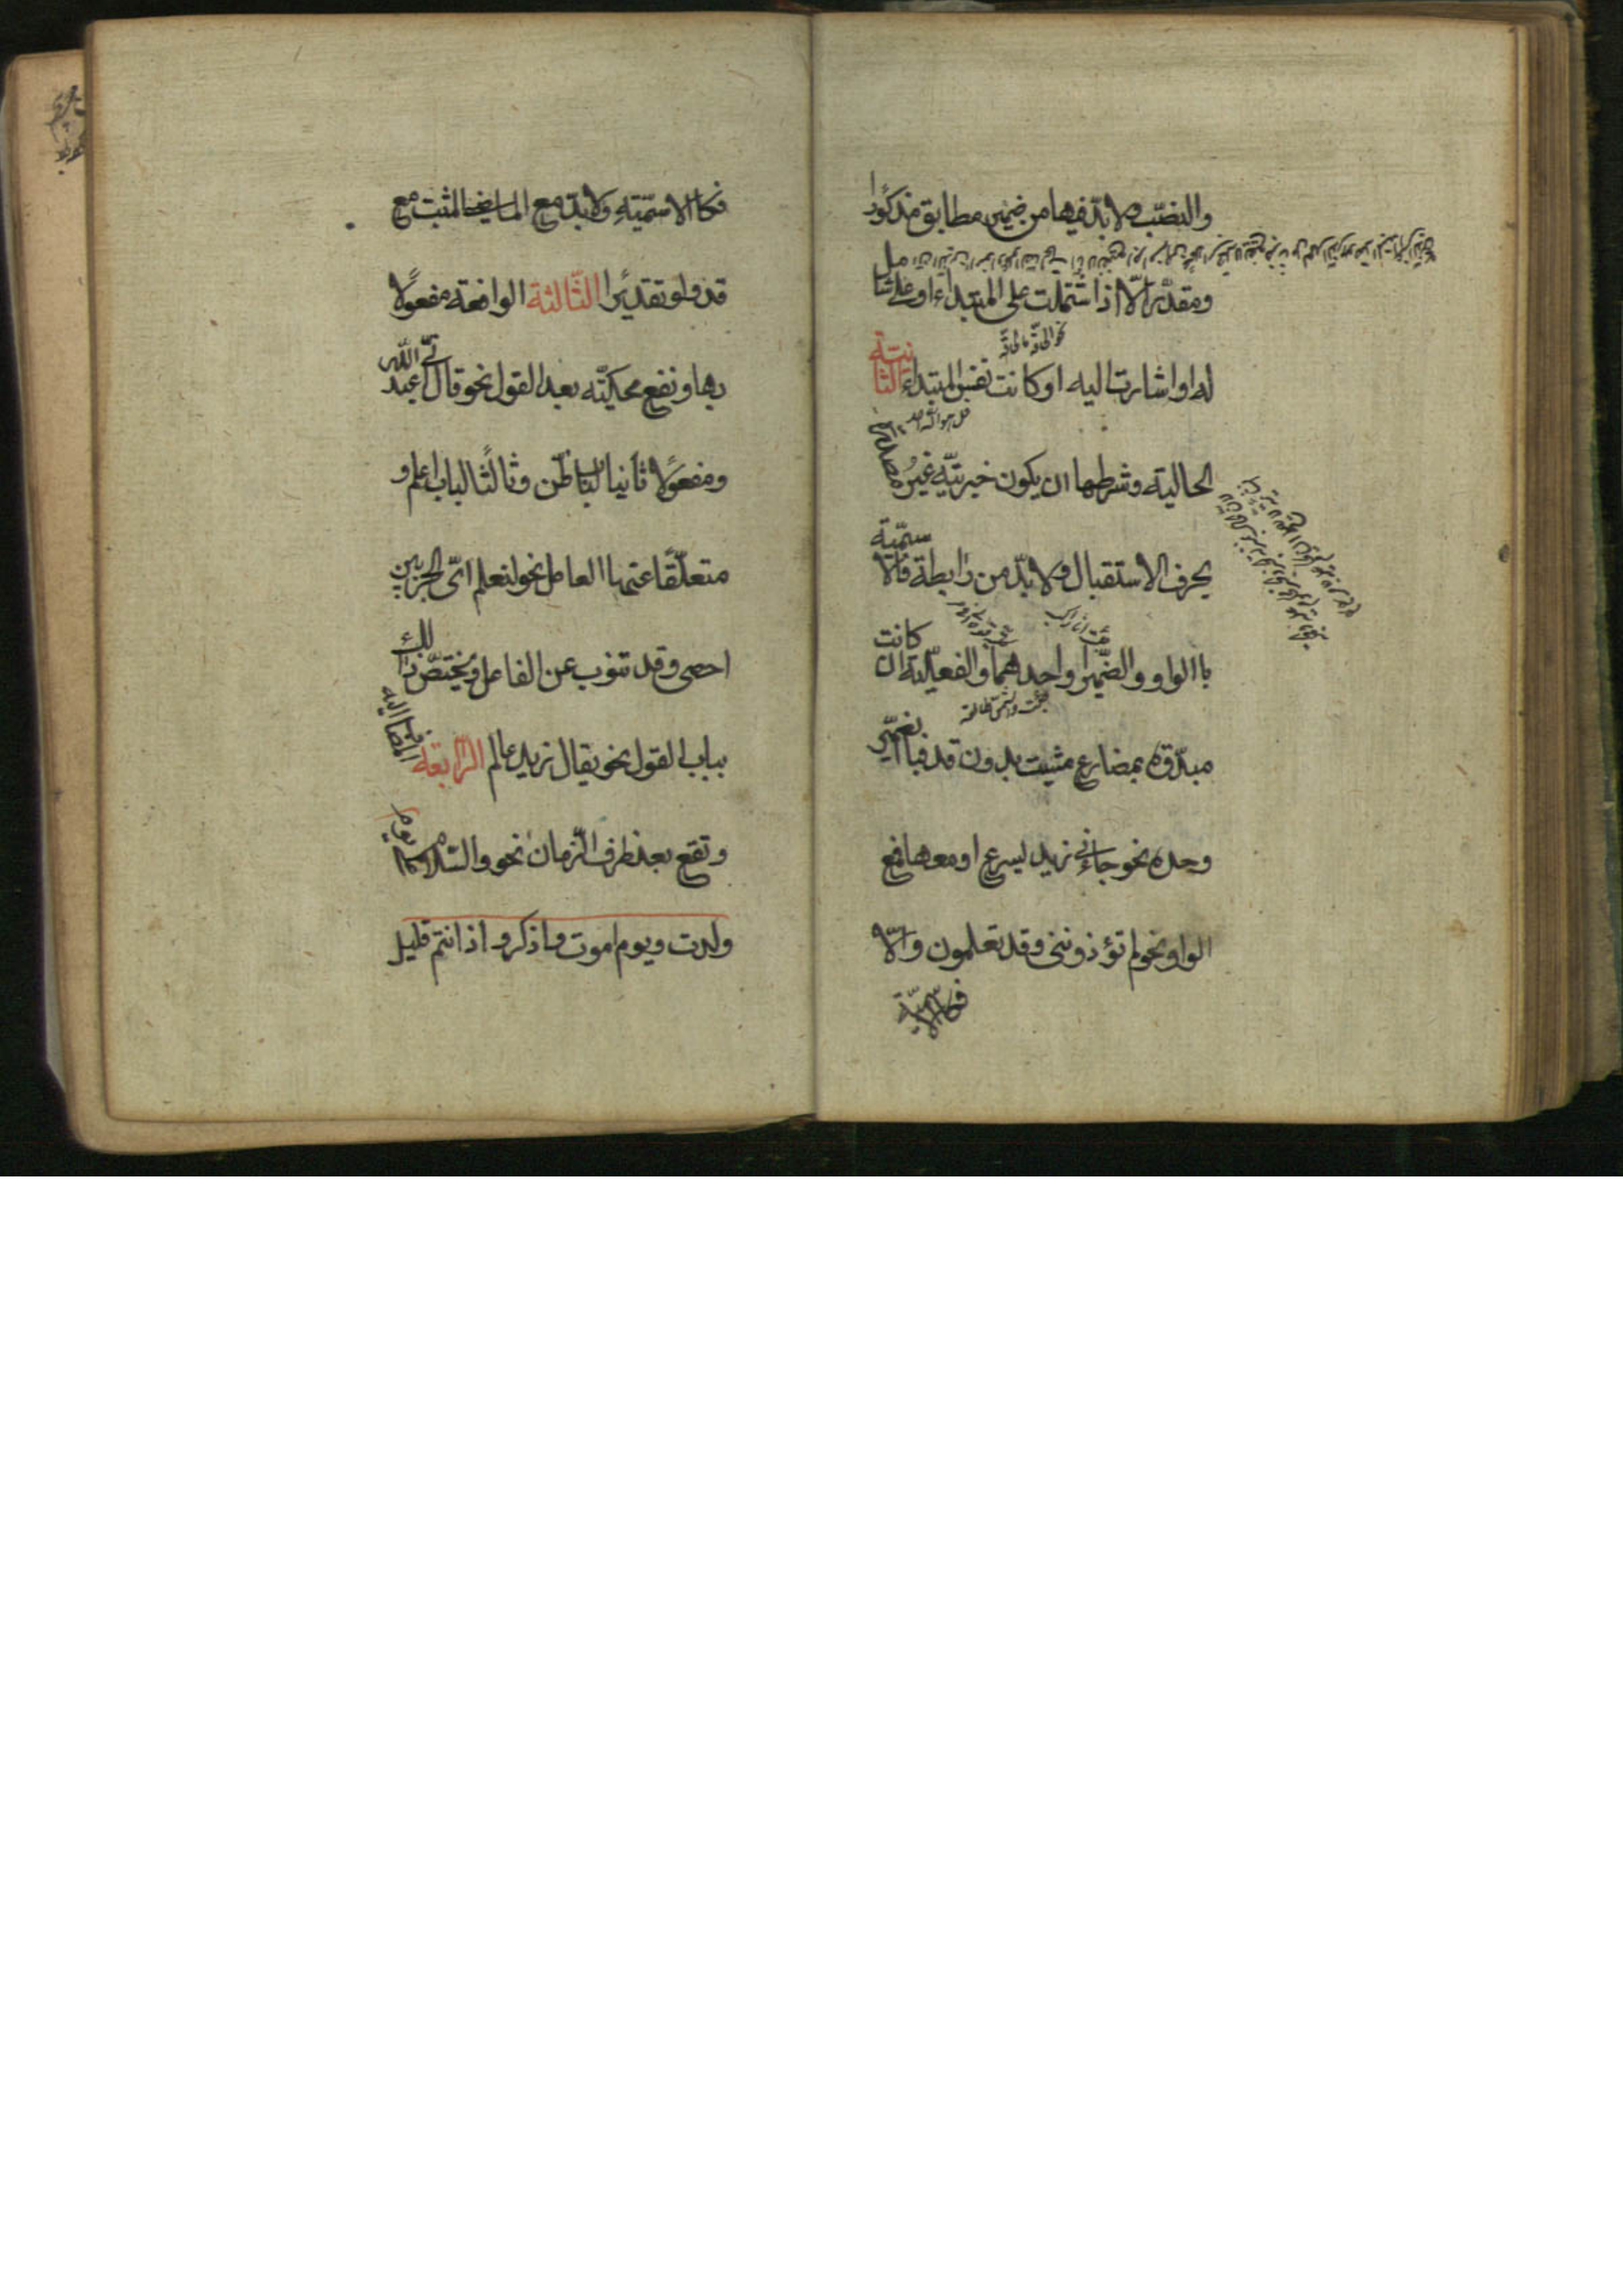 والنصب ولا بدّ فيها من ضمير مطابق مذكورا
ومقدّرا الّا اذا اشتملت على المبتداء او على شامل
نحو الحاقّة ما الحاقّة
له او اشارت اليه او كانت نفس المبتداء الثانية
قل هو الله احد
الحالية وشرطها ان يكون خبريّة غير مصدّرة
بحرف الاستقبال ولا بدّ من رابطة فالاسميّة
باالواو والضمير او احدهما والفعليّة ان كانت
جئت والشمس طالعة
مبدّوة بمضارع مثبت بدون قد فباالضمير
وحده نحو جاءني زيد يسرع او معها فمع
الواو نحو لم تؤذونني وقد تعلمون والّا
فكالاسميّة
فكاالاسميّة ولا بدّ مع الماضي المثبت مع
قد ولو تقديرا الثّالثة الواقعة مفعولا
بها وتقع محكيّة بعد القول نحو قال انّي عبد الله
ومفعولا ثانيا لباب ظنّ وثالثا لباب اعلم و
متعلّقا عنها االعامل نحو لنعلم ايّ الحزبين
احصى وقد تنوب عن الفاعل ويختصّ ذالك
بباب القول نحو يقال زيد عالم الرّابعة المضاف اليه
وتقع بعد ظرف الزمان نحو والسّلام يوم
ولدت ويوم اموت واذكروا اذ انتم قليل